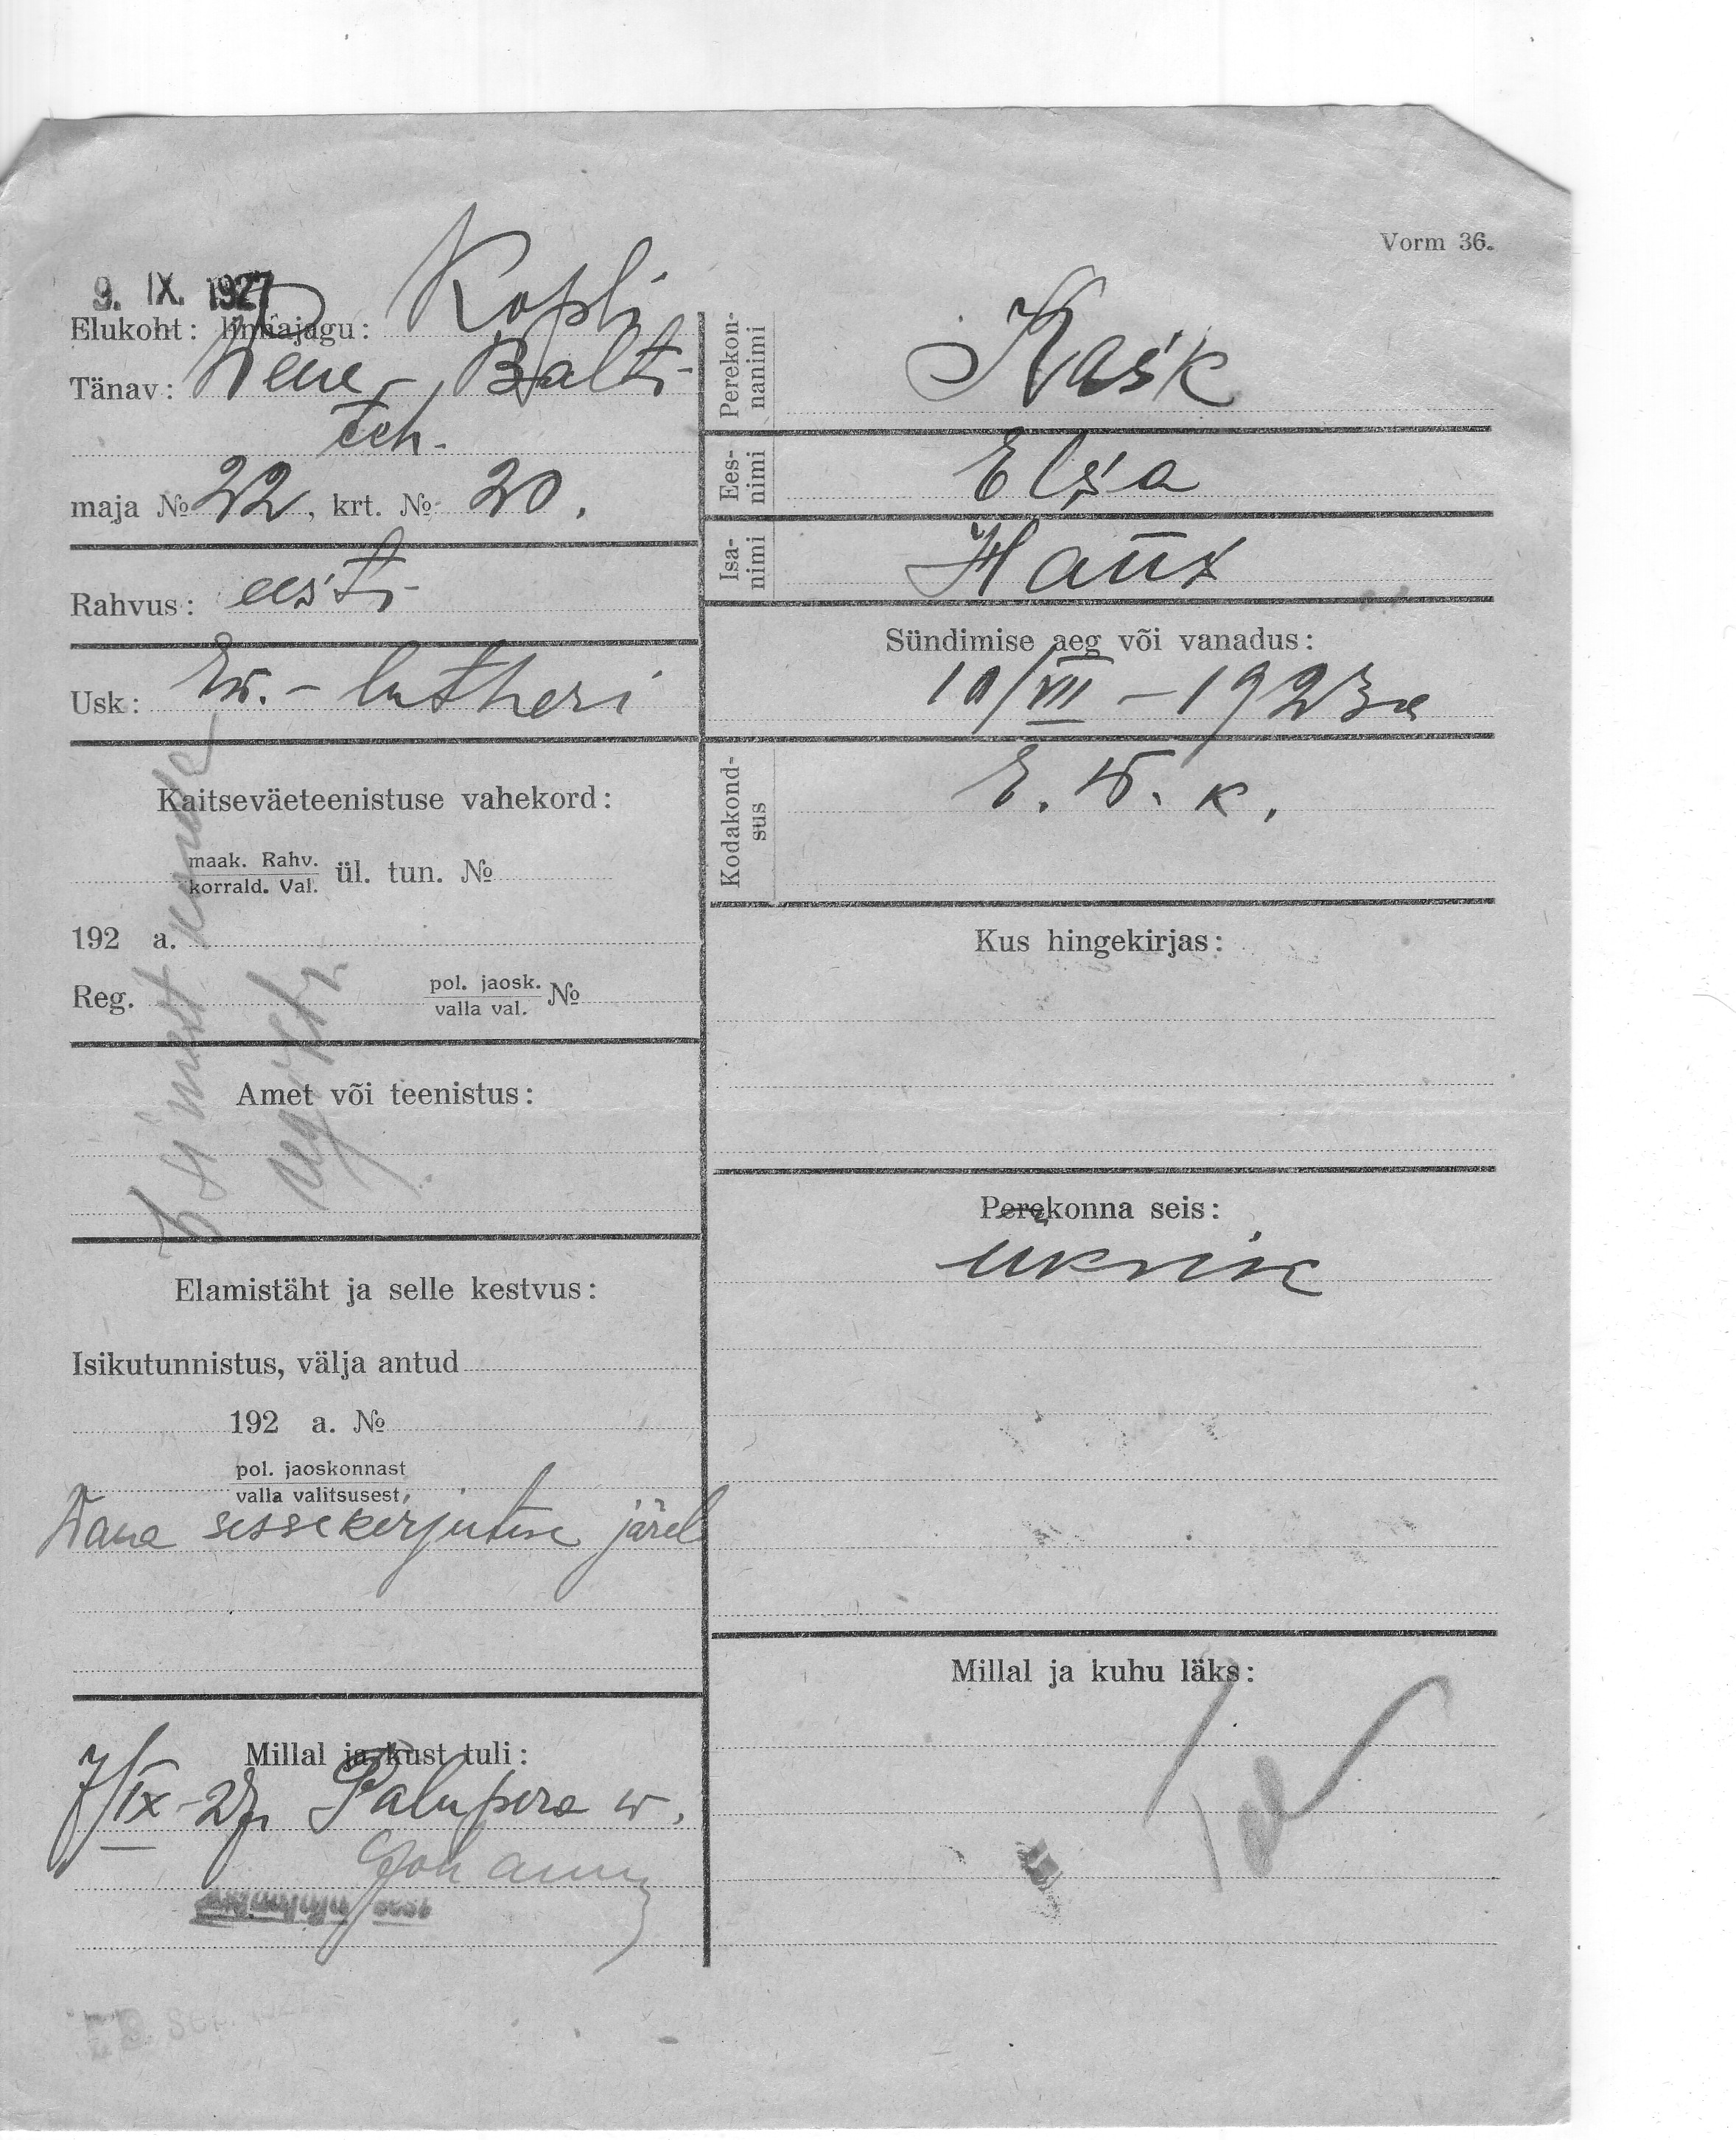 Vorm 36.
9. IX. 1927
Elukoht: linnajagu: Kopli
Tänav: Wene-Balti
teh.
maja № 22, krt. № 20.
Rahvus: eesti
Usk: Ew.-lutheri
Kaitseväeteenistuse vahekord:
maak. Rahv.
korrald. Val. ül. tun. №
192 a.
Reg. pol. jaosk.
valla val. №
Amet või teenistus:
Elamistäht ja selle kestvus:
Isikutunnistus, välja antud
192 a. №
pol. jaoskonnast
valla valitsusest,
Wana sissekirjutuse järel
Millal ja kust tuli:
7/IX-27. Palupera w.
Perekon-
nanimi
Kask
Ees-
nimi
Elsa
Isa-
nimi
Sündimise aeg või vanadus:
10/VII - 1923a
Kodakond-
sus
E. W. k.
Kus hingekirjas:
Perekonna seis:
Millal ja kuhu läks: